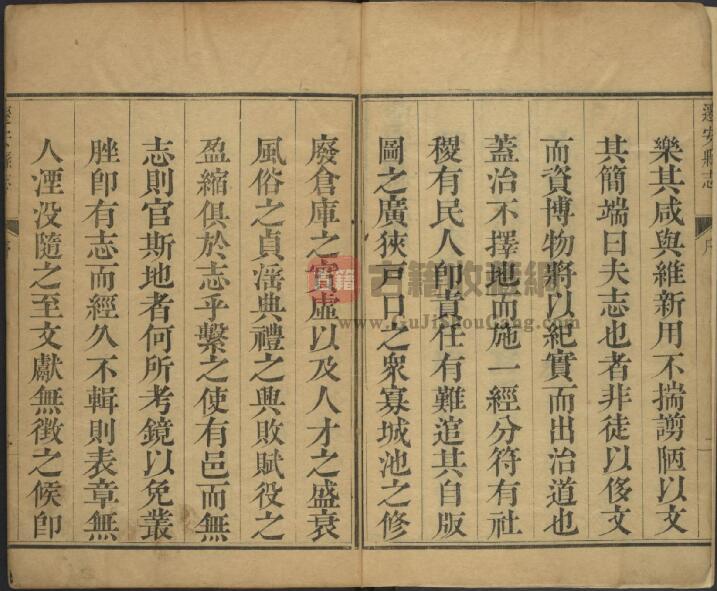 遷安縣志
序
樂其咸與維新用不揣謭陋以文
其簡端曰夫志也者非徒以侈文
而資博物將以紀實而出治道也
蓋治不擇地而施一經分符有社
稷有民人卽責任有難逭其自版
圖之廣狹戸口之衆寡城池之修
廢倉庫之實虛以及人才之盛衰
風俗之貞滛典禮之興敗賦役之
盈縮俱於志乎繫之使有邑而無
志則官斯地者何所考鏡以免叢
脞卽有志而經久不輯則表章無
人湮没隨之至文獻無徵之候卽
遷安縣志
序
古籍
古籍收藏網
www.GuJiShouCang.com